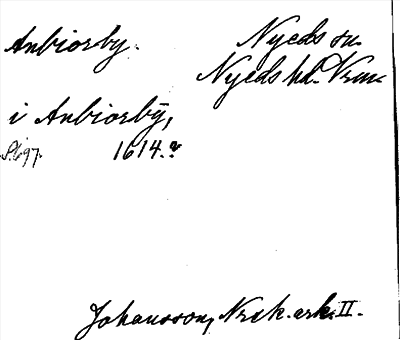 Anbiorby. Nyeds sn.
Nyeds hd. Vrml.
i Anbiorbÿ,
S. 697. 1614.
Johansson, Nrsk. ark. II.